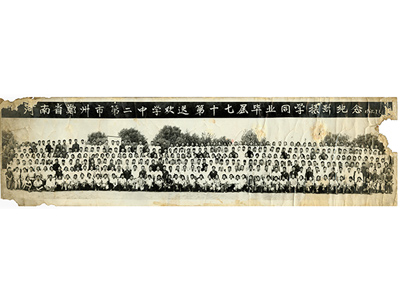 河南省郑州市第二中学欢送第十七届毕业同学摄影纪念